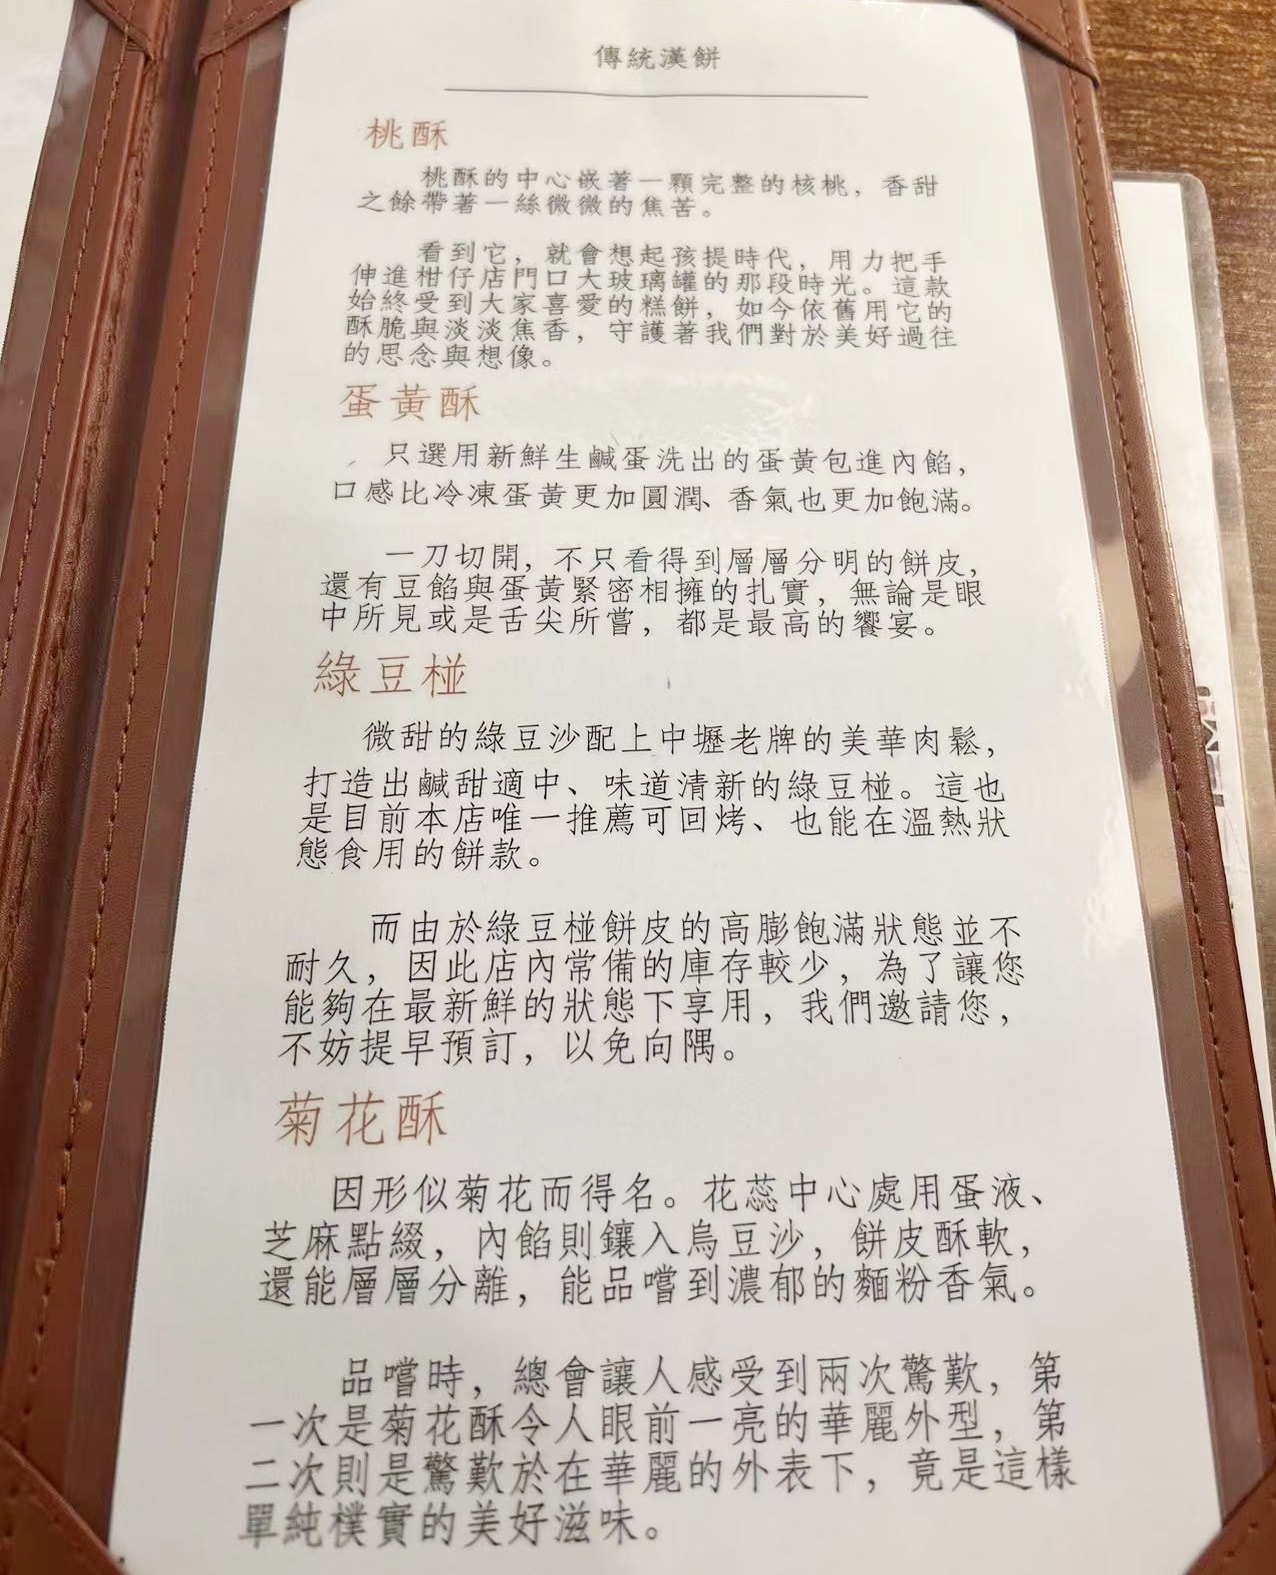 傳統漢餅
桃酥
桃酥的中心嵌著一顆完整的核桃，香甜
之餘帶著一絲微微的焦苦。
看到它，就會想起孩提時代，用力把手
伸進柑仔店門口大玻璃罐的那段時光。這款
始終受到大家喜愛的糕餅，如今依舊用它的
酥脆與淡淡焦香，守護著我們對於美好過往
的思念與想像。
蛋黃酥
只選用新鮮生鹹蛋洗出的蛋黃包進內餡，
口感比冷凍蛋黃更加圓潤、香氣也更加飽滿。
一刀切開，不只看得到層層分明的餅皮，
還有豆餡與蛋黃緊密相擁的扎實，無論是眼
中所見或是舌尖所嘗，都是最高的饗宴。
綠豆椪
微甜的綠豆沙配上中壢老牌的美華肉鬆，
打造出鹹甜適中、味道清新的綠豆椪。這也
是目前本店唯一推薦可回烤、也能在溫熱狀
態食用的餅款。
而由於綠豆椪餅皮的高膨飽滿狀態並不
耐久，因此店內常備的庫存較少，為了讓您
能夠在最新鮮的狀態下享用，我們邀請您，
不妨提早預訂，以免向隅。
菊花酥
因形似菊花而得名。花蕊中心處用蛋液、
芝麻點綴，內餡則鑲入烏豆沙，餅皮酥軟，
還能層層分離，能品嚐到濃郁的麵粉香氣。
品嚐時，總會讓人感受到兩次驚歎，第
一次是菊花酥令人眼前一亮的華麗外型，第
二次則是驚歎於在華麗的外表下，竟是這樣
單純樸實的美好滋味。